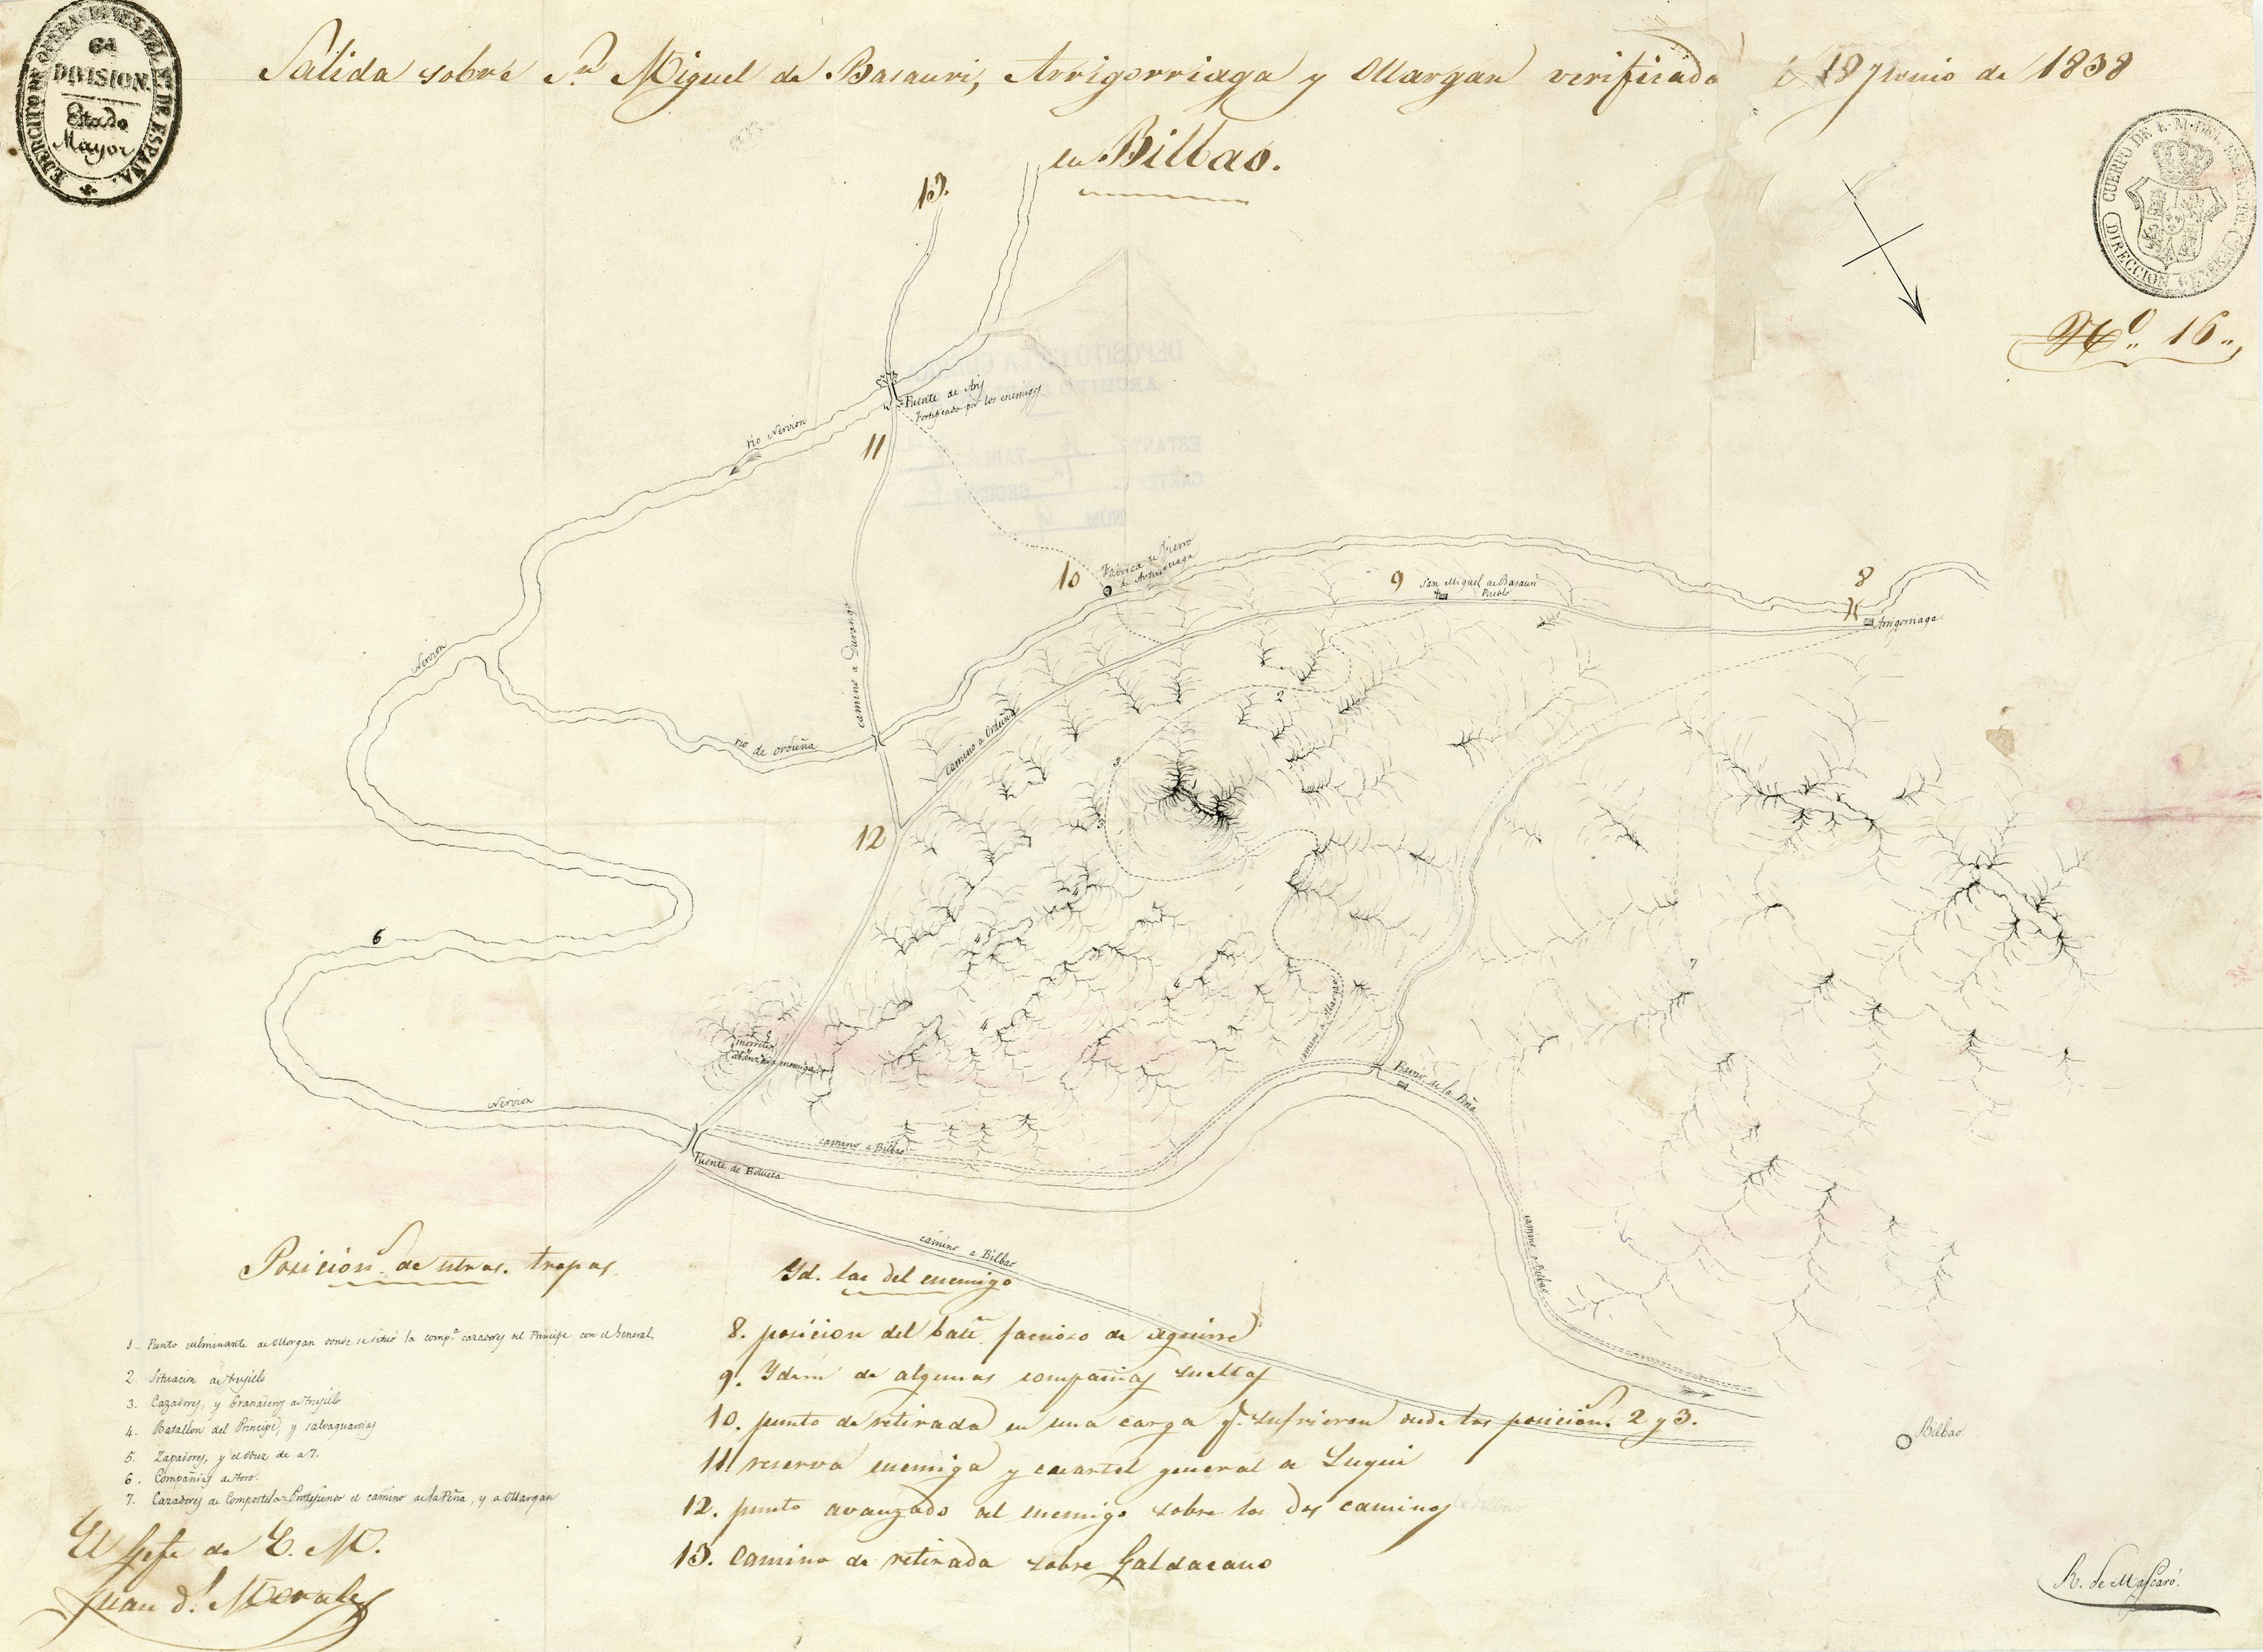 EJERCITO DE OPERACIONES DEL N. DE ESPAÑA.
6ª
DIVISION.
Estado
Mayor
Salida sobre Sn. Miguel de Basauri, Arrigorriaga y Ollargan verificada 18 Junio de 1838
en Bilbao.
CUERPO DE E. M. DEL EJERCITO
DIRECCION GENERAL
Nº. 16.
13.
Puente de Ariz
Fortificado por los enemigos
rio Nervion
11
10
Fabrica de fierro
9
San Miguel de Basauri
Pueblo
8
Arrigorriaga
camino a Durango
Nervion
rio de Orduña
camino a Orduña
2
3
3
12
4
4
4
4
6
7
abanzada enemiga
camino a Ollargan
Nervion
Barrio de la Peña
camino a Bilbao
Puente de Bolueta
camino a Bilbao
camino a Bilbao
Bilbao
Posicion. de ntras. tropas.
1. Punto culminante de Ollargan donde se situó la comp.ª cazadores del Principe con el General.
2. Situacion de Trujillo
3. Cazadores, y Granaderos de Trujillo
4. Batallon del Principe, y salvaguardias
5. Zapadores, y el obuz de a 7.
6. Compañias de Toro.
7. Cazadores de Compostela = Protejieron el camino de la Peña, y a Ollargan
Yd. las del enemigo
8. posicion del batn. faccioso de Aguirre
9. Ydem de algunas compañias sueltas
10. punto de retirada en una carga q.e sufrieron desde las posicion.s 2 y 3.
11. reserva enemiga y cuartel general de Luqui
12. punto avanzado del enemigo sobre los dos caminos
13. Camino de retirada sobre Galdacano
El Gefe de E. M.
Juan d.l Morales
R. de Mascaró.